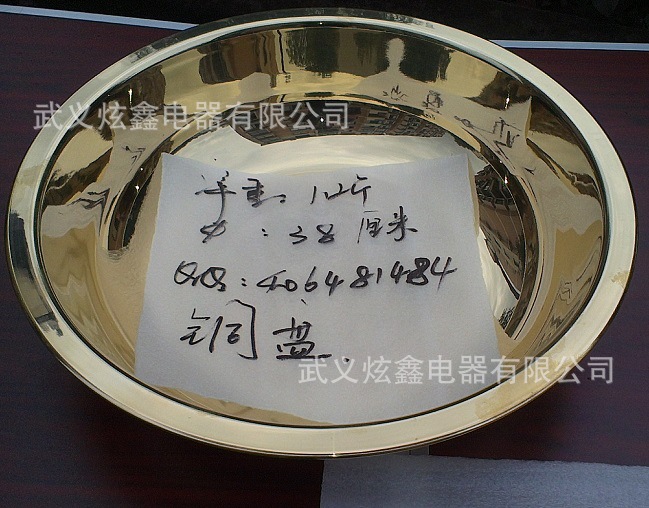 武义炫鑫电器有限公司
单重：1.2斤
φ：38厘米
QQ：406481484
铜盘.
武义炫鑫电器有限公司